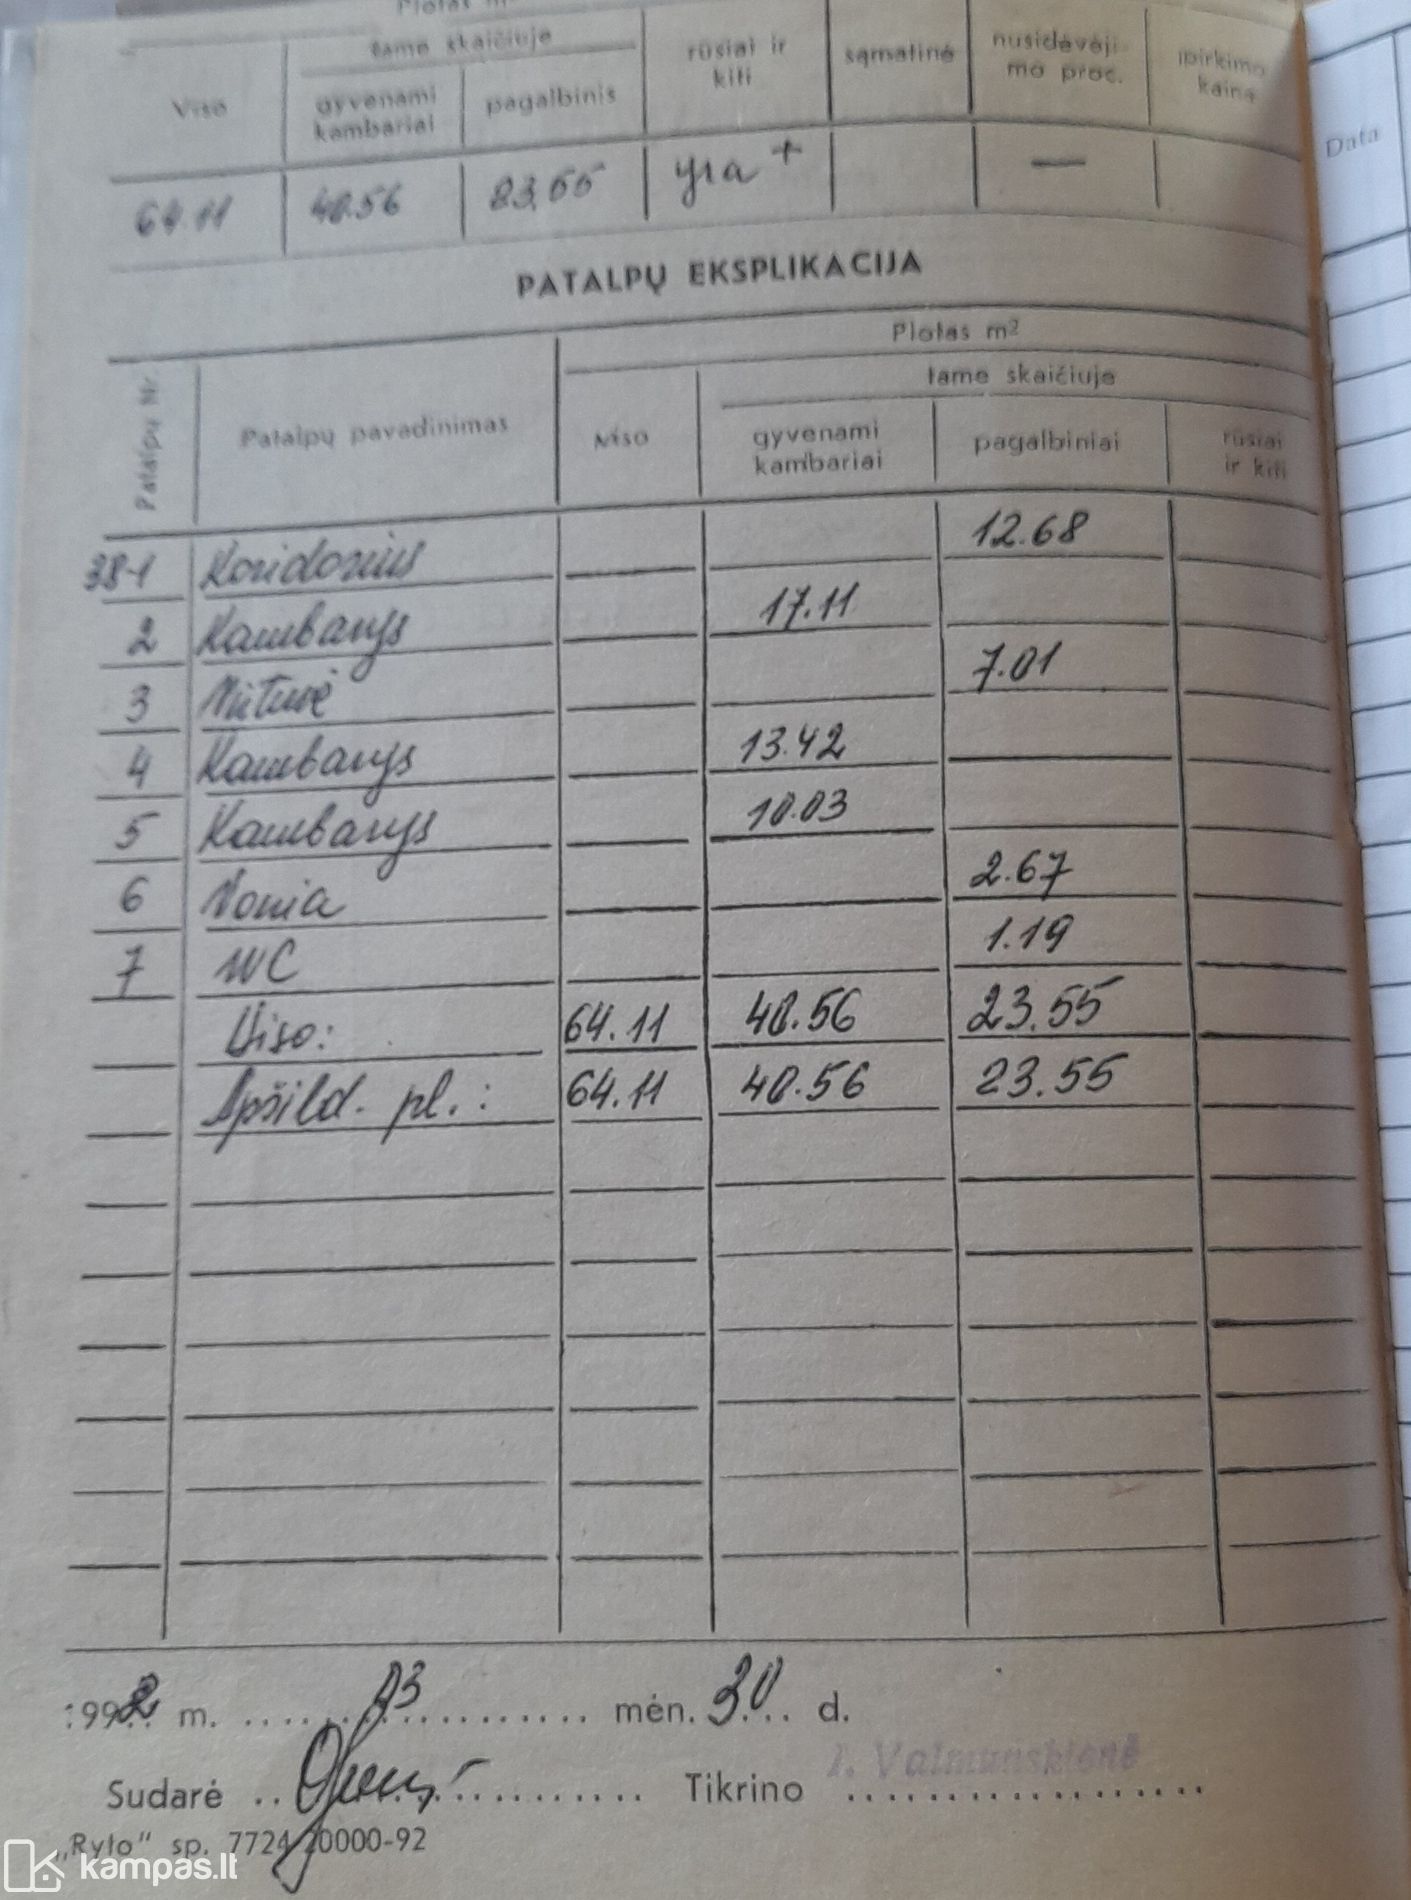 Plotas m²
Viso
tame skaičiuje
gyvenami kambariai
pagalbinis
rūsiai ir kiti
sąmatinė
nusidėvėji- mo proc.
įpirkimo kaina
64.11 40.56 23,55 yra + —
Data
PATALPŲ EKSPLIKACIJA
Patalpų Nr.
Patalpų pavadinimas
Plotas m²
Viso
tame skaičiuje
gyvenami kambariai
pagalbiniai
rūsiai ir kiti
38-1 Koridorius 12.68
2 Kambarys 17.11
3 Virtuvė 7.01
4 Kambarys 13.42
5 Kambarys 10.03
6 Vonia 2.67
7 WC 1.19
Viso: 64.11 40.56 23.55
Apšild. pl.: 64.11 40.56 23.55
1992 m. 03 mėn. 30 d.
Sudarė Tikrino I. Valmunskienė
„Ryto" sp. 7724 20000-92
kampas.lt